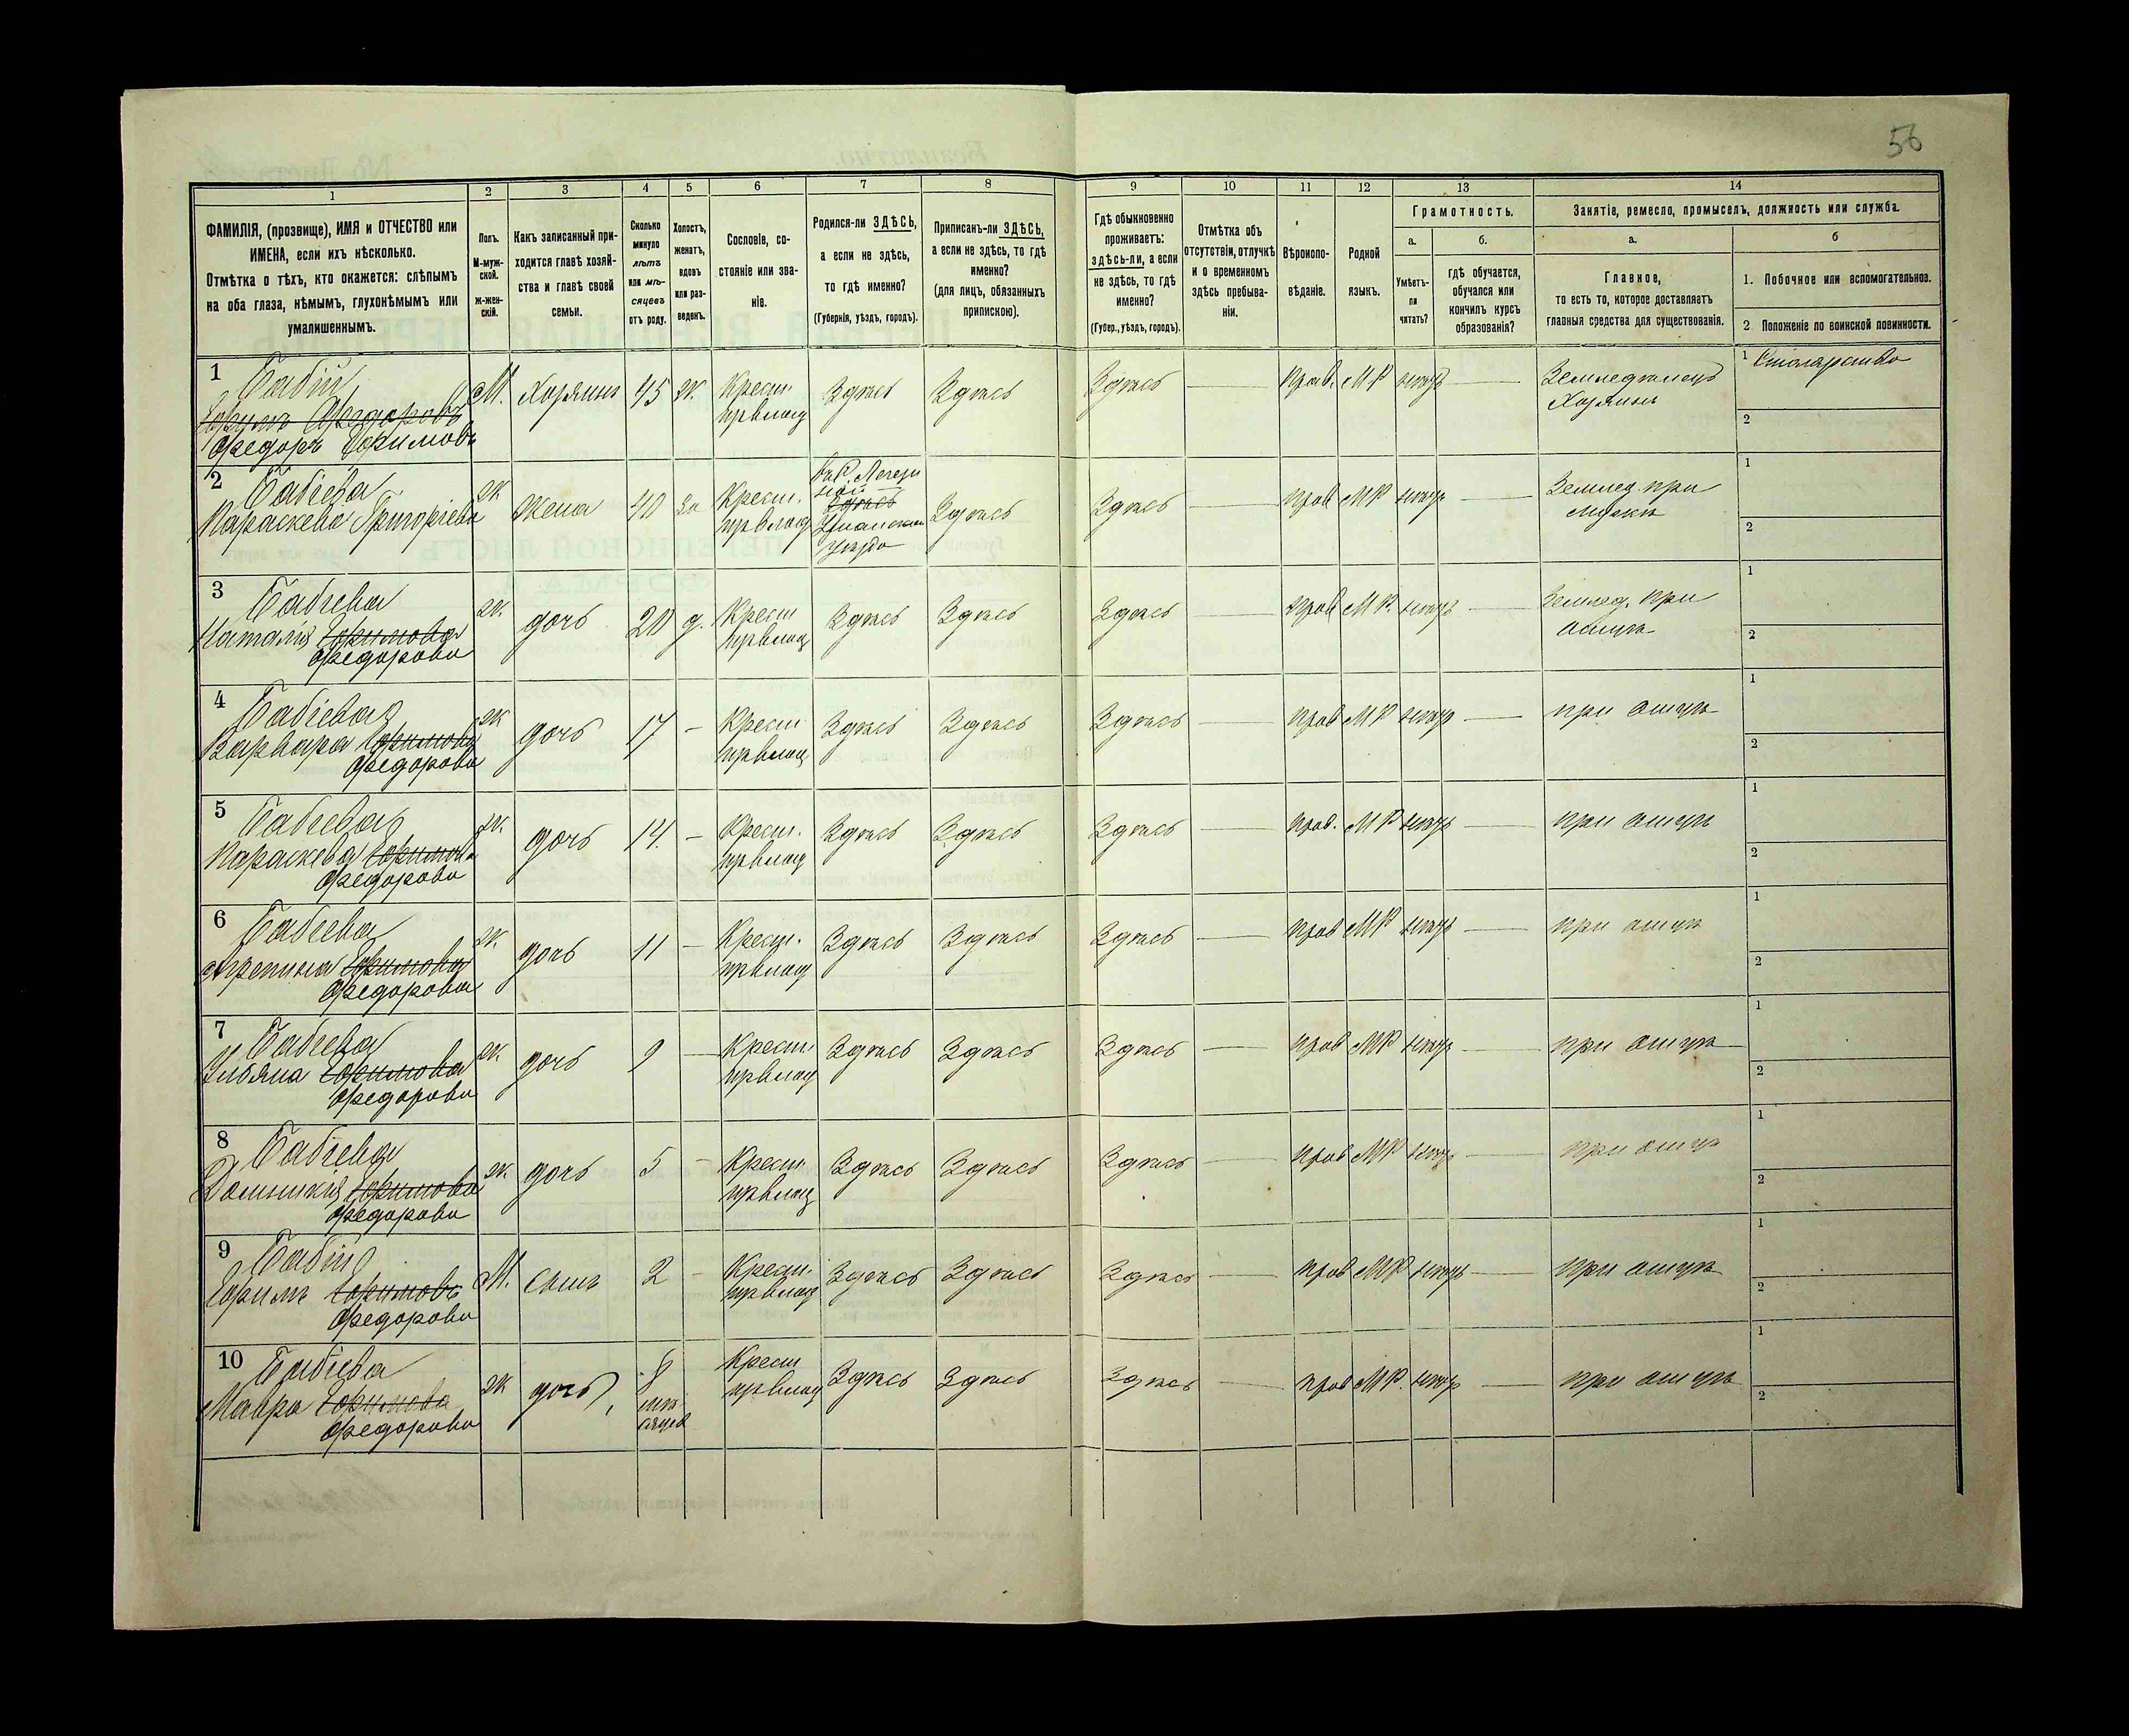 56
1
2
3
4
5
6
7
8
9
10
11
12
13
14
ФАМИЛІЯ, (прозвище), ИМЯ и ОТЧЕСТВО или
ИМЕНА, если ихъ нѣсколько.
Отмѣтка о тѣхъ, кто окажется: слѣпымъ
на оба глаза, нѣмымъ, глухонѣмымъ или
умалишеннымъ.
Полъ.
М-муж-
ской.
ж-жен-
скій.
Какъ записанный при-
ходится главѣ хозяй-
ства и главѣ своей
семьи.
Сколько
минуло
лѣтъ
или мѣ-
сяцевъ
отъ роду.
Холостъ,
женатъ,
вдовъ
или раз-
веденъ.
Сословіе, со-
стояніе или зва-
ніе.
Родился-ли ЗДѢСЬ,
а если не здѣсь,
то гдѣ именно?
(Губернія, уѣздъ, городъ).
Приписанъ-ли ЗДѢСЬ,
а если не здѣсь, то гдѣ
именно?
(для лицъ, обязанныхъ
припискою).
Гдѣ обыкновенно
проживаетъ:
здѣсь-ли, а если
не здѣсь, то гдѣ
именно?
(Губер., уѣздъ, городъ).
Отмѣтка объ
отсутствіи, отлучкѣ
и о временномъ
здѣсь пребыва-
ніи.
Вѣроиспо-
вѣданіе.
Родной
языкъ.
Грамотность.
а.
Умѣетъ-
ли
читать?
б.
гдѣ обучается,
обучался или
кончилъ курсъ
образованія?
Занятіе, ремесло, промыселъ, должность или служба.
а.
Главное,
то есть то, которое доставляетъ
главныя средства для существованія.
б
1. Побочное или вспомогательное.
2. Положеніе по воинской повинности.
1 Бабій
Ефимъ Федоровъ
Федоръ Ефимовъ
М. Хозяинъ 45 ж. Крест. Здѣсь Здѣсь Здѣсь — прав. МР нѣтъ — Земледѣлецъ 1 Столярство
Хозяинъ
2
2 Бабіева
Параскева Григоріева
ж жена 40 Крест. Здѣсь
Уманскаго
уѣзда
Здѣсь Здѣсь — прав МР нѣтъ — Землед. при 1
мужѣ
2
3 Бабіева
Наталія Ефимова
Федорова
ж. дочь 20 д. Крест Здѣсь Здѣсь Здѣсь — прав МР. нѣтъ — Землед. при 1
отцѣ
2
4 Бабіева
Варвара Ефимова
Федорова
ж дочь 17 — Крест Здѣсь Здѣсь Здѣсь — прав МР нѣтъ — при отцѣ 1
2
5 Бабіева
Параскева Ефимова
Федорова
ж. дочь 14. — Крест. Здѣсь Здѣсь Здѣсь — прав. МР нѣтъ — при отцѣ 1
2
6 Бабіева
Агрепина Ефимова
Федорова
ж. дочь 11 — Крест. Здѣсь Здѣсь Здѣсь — прав МР нѣтъ — при отцѣ 1
2
7 Бабіева
Ульяна Ефимова
Федорова
ж. дочь 9 — Крест Здѣсь Здѣсь Здѣсь — прав МР нѣтъ — при отцѣ 1
2
8 Бабіева
Домникія Ефимова
Федорова
ж дочь 5 — Крест Здѣсь Здѣсь Здѣсь — прав МР нѣтъ — при отцѣ 1
2
9 Бабій
Ефимъ Ефимовъ
Федорова
М. сынъ 2 — Крест. Здѣсь Здѣсь Здѣсь — прав МР нѣтъ — при отцѣ 1
2
10 Бабіева
Мавра Ефимова
Федорова
ж дочь 8
мѣ
сяцев
Крест Здѣсь Здѣсь Здѣсь — прав МР. нѣтъ — при отцѣ 1
2